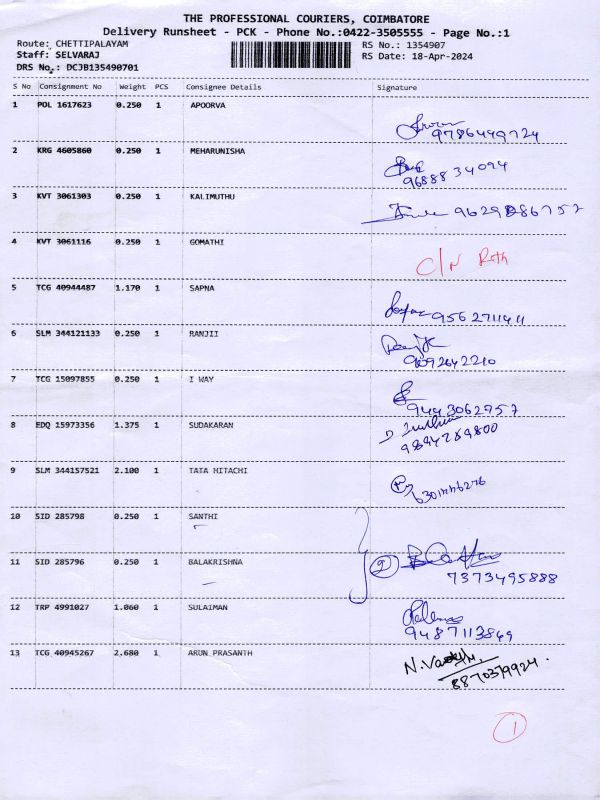 THE PROFESSIONAL COURIERS, COIMBATORE
Delivery Runsheet - PCK - Phone No.:0422-3505555 - Page No.:1
Route: CHETTIPALAYAM RS No.: 1354907
Staff: SELVARAJ RS Date: 18-Apr-2024
DRS No.: DCJB135490701
S No Consignment No Weight PCS Consignee Details Signature
1 POL 1617623 0.250 1 APOORVA
9786449724
2 KRG 4605860 0.250 1 MEHARUNISHA
9688834094
3 KVT 3061303 0.250 1 KALIMUTHU
4 KVT 3061116 0.250 1 GOMATHI
C/N
5 TCG 40944487 1.170 1 SAPNA
9562711411
6 SLM 344121133 0.250 1 RANJII
9092642210
7 TCG 15097855 0.250 1 I WAY
9443062957
8 EDQ 15973356 1.375 1 SUDAKARAN
9894269800
9 SLM 344157521 2.100 1 TATA HITACHI
10 SID 285798 0.250 1 SANTHI
11 SID 285796 0.250 1 BALAKRISHNA
2
7373495888
12 TRP 4991027 1.060 1 SULAIMAN
9487113869
13 TCG 40945267 2.680 1 ARUN PRASANTH
8870379924
1